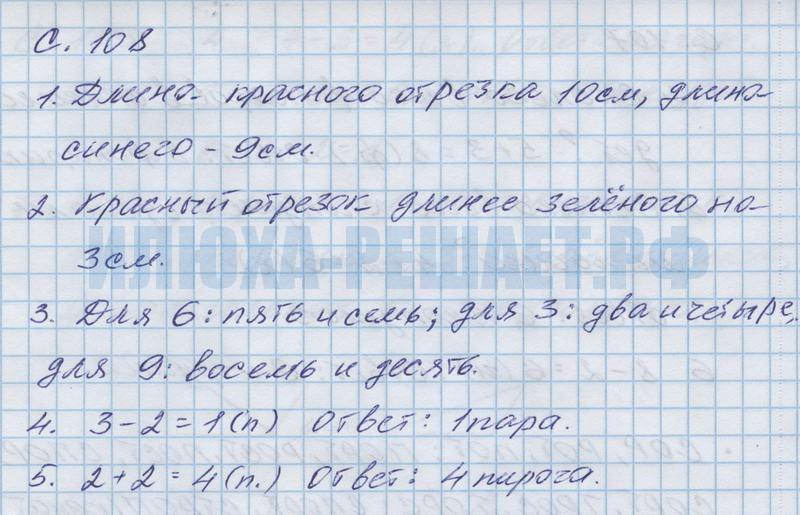 С. 108
1. Длина красного отрезка 10см, длина
синего - 9см.
2. Красный отрезок длинее зелёного на
3см.
ИЛЮХА-РЕШАЕТ.РФ
3. Для 6: пять и семь; для 3: два и четыре,
для 9: восемь и десять.
4. 3-2=1(п) Ответ: 1 пара.
5. 2+2=4(п.) Ответ: 4 пирога.